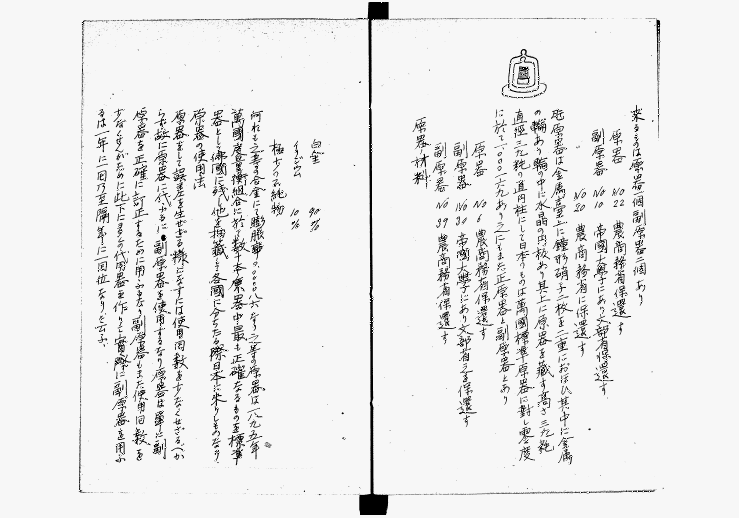 来るものは原器一個副原器二個あり
原器 No 22 農商務省保還す
副原器 No 10 帝國大學にあり文部省保還す
No 20 農商務省に保還す
此原器は金属臺上に鐘形硝子二枚を二重におほひ其中に金属
の輪あり輪の中に水晶の円板あり其上に原器を藏す高さ三九粍
直徑三九粍の直円柱にして日本のものは萬國標準原器に対し零度
に於て
あり之にもまた正原器と副原器とあり
原器 No 6 農商務省保還す
副原器 No 30 帝國大學にあり文部省之を保還す
副原器 No 39 農商務省保還す
原器ノ材料
白金 90%
イリジウム 10%
極少ノ不純物
何れも之等の合金に膨脹率〇.〇〇〇〇八六なり之等の原器は一八九五年
萬國度量衡組合に於て数十本原器中最も正確なるものを標準
器として佛國に残し他を抽籤して各國に分ちたる際日本に来りしものなり
原器の使用法
原器をして誤差を生ぜざる様になすには使用回数を少なくせざるべか
らず故に原器に代ふるに副原器を使用するなり原器は単に副
原器を正確に訂正するために用ふるなり副原器もまた使用回数を
少なくせんがために此下に多くの代用器を作りて實際に副原器を用ふ
るは一年に一回乃至隔年に一回位なりと云ふ、